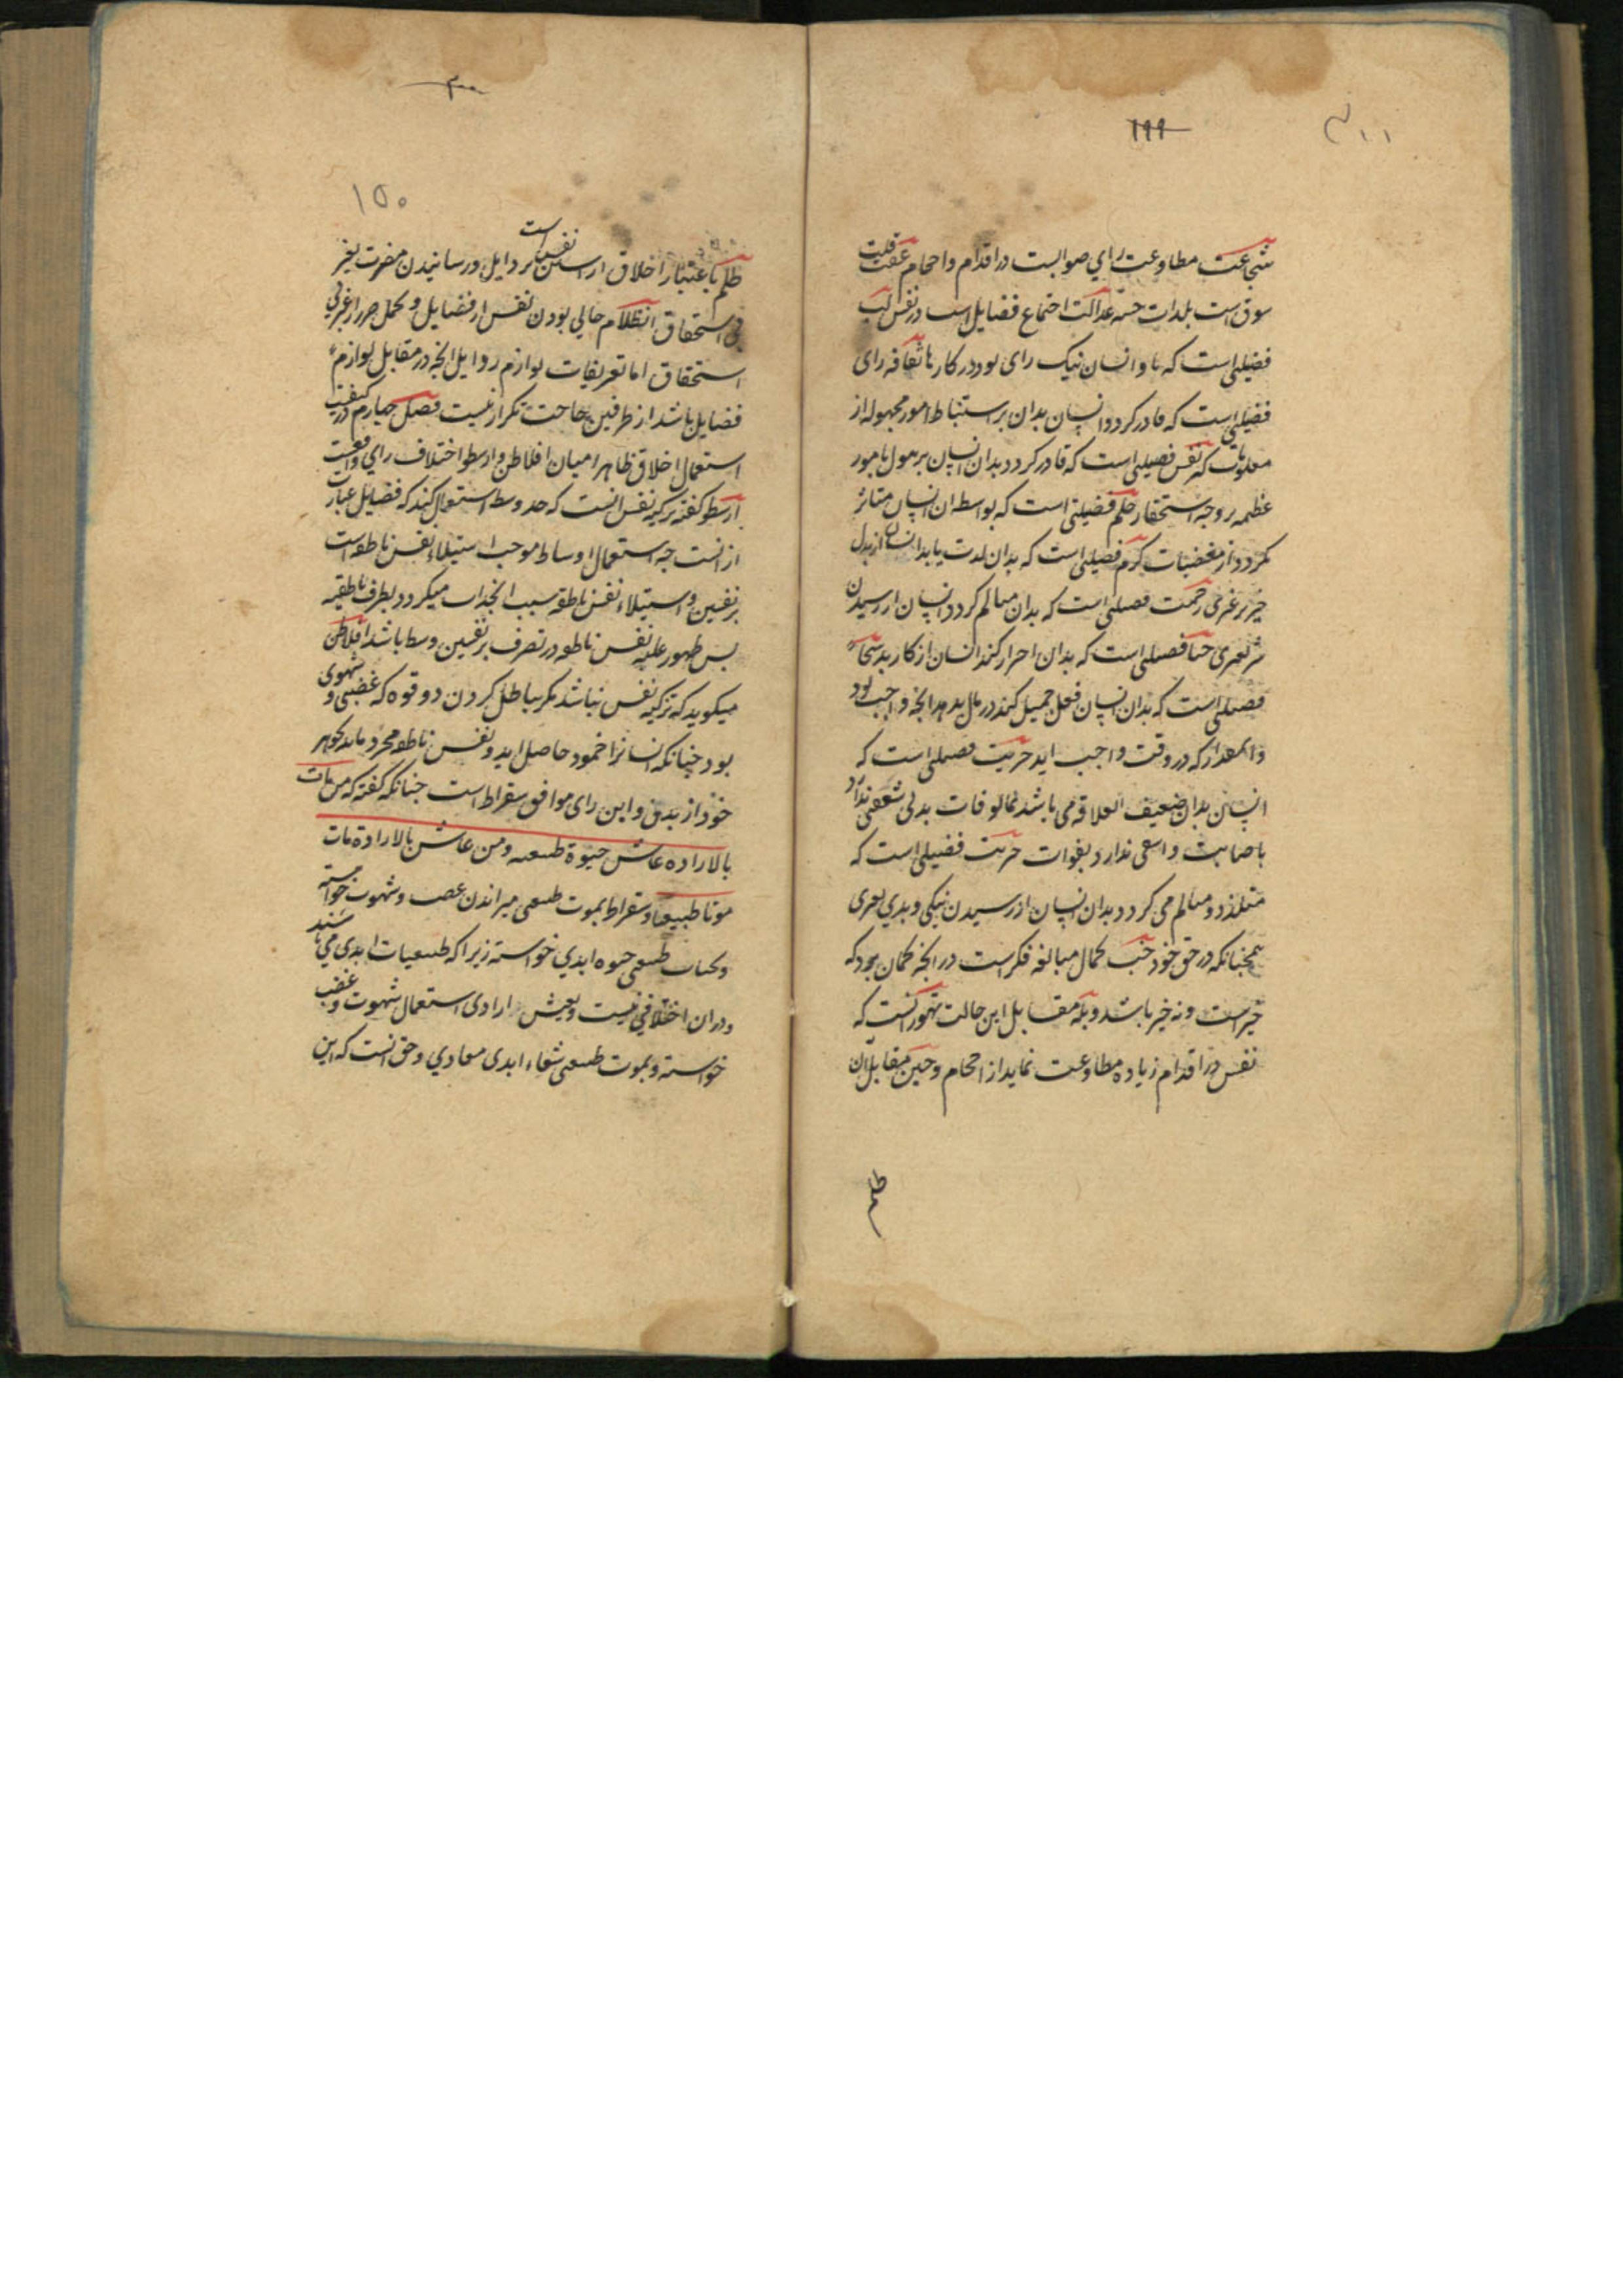 ۱۹۹
شجاعت مطاوعت رای صوابست در اقدام و احجام عفت قلت
شوق است بلذات حسیه عدالت اجتماع فضایل است در نفس لب
فضیلتی است که با و انسان نیک رای بود در کارها ثقافه رای
فضیلتی است که قادر گردد انسان بدان بر استنباط امور مجهوله از
معلومات کبر نفس فضیلتی است که قادر گردد بدان انسان بر امور
عظمه بر وجه استحقار حلم فضیلتی است که بواسطه ان انسان متاثر
نکردد از مغضبات کرم فضیلتی است که بدان لذت یابد انسان از بذل
خیر بر غیری رحمت فضیلتی است که بدان متالم کردد انسان از رسیدن
شر بغیری حیا فضیلتی است که بدان احتراز کند انسان از کار بد سخا
فضیلتی است که بدان انسان فعل جمیل کند در مال بدهد انچه واجب بود
و انمقدار که در وقت واجب اید حریت فضیلتی است که
انسان بدان ضعیف العلاقه می باشد بمالوفات بدنی شعفی ندارد
باصابت و اسفی ندارد بفوات حریت فضیلتی است که
متلذذ و متالم می کردد بدان انسان از رسیدن نیکی و بدی بغیری
همچنانکه در حق خود خب کمال مبالغه فکرست در انچه گمان برد که
خیرست و نه خیر باشد و بله مقابل این حالت تهور انست که
نفس در اقدام زیاده مطاوعت نماید از احجام و جبن مقابل ان
ظلم
۲۰۰
۱۵۰
ظلم باعتبار اخلاق اراستن نفس است بردایل و رسانیدن مضرت بغیر
بی استحقاق انظلام خالی بودن نفس از فضایل و تحمل ضرر از غیر بی
استحقاق اما تعریفات لوازم ردایل انچه در مقابل لوازم
فضایل باشد از طرفین حاجت تکرار نیست فصل چهارم در کیفیت
استعمال اخلاق ظاهرا میان افلاطن و ارسطو اختلاف رای واقعست
ارسطو گفته تزکیه نفس انست که حد وسط استعمال کند که فضایل عبارت
از انست چه استعمال اوساط موجب استیلاء نفس ناطقه است
بر نفسین و استیلاء نفس ناطقه سبب انجذاب میگردد بطرف ناطقیه
بس ظهور غلبه نفس ناطقه در تصرف بر نفسین وسط باشد افلاطن
میگوید که تزکیه نفس نباشد مکر بباطل کردن دو قوه که غضبی و شهوی
بود چنانکه انسانرا خمود حاصل اید و نفس ناطقه مجرد ماند بجوهر
خود از بدن و این رای موافق سقراط است چنانکه گفته که من مات
بالاراده عاش حیوة طبیعیه ومن عاش بالارادة مات
موتا طبیعیا و سقراط بموت طبیعی میراندن غضب و شهوت خواسته
و بحیات طبیعی حیوه ابدی خواسته زیرا که طبیعیات ابدی می باشند
و در ان اختلافی نیست و بعیش ارادی استعمال شهوت و غضب
خواسته و بموت طبیعی شقاء ابدی معادی و حق انست که این